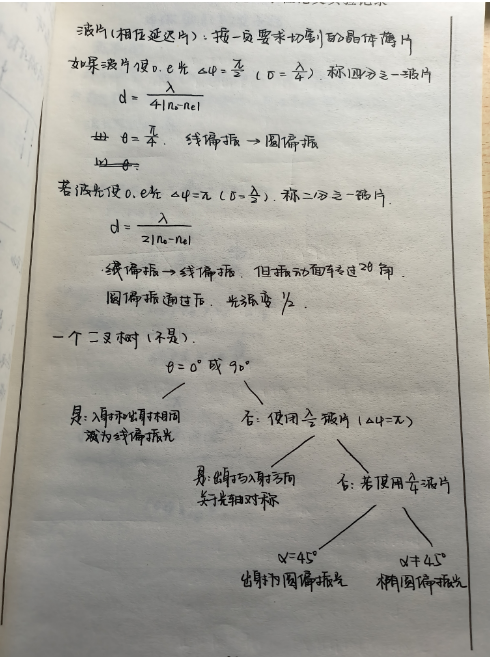 波片(相位延迟片):按一定要求切割的晶体薄片
如果波片使o.e光 Δφ=π/2 (δ=λ/4).称四分之一波片
d = λ/4|no-ne|
θ=π/4. 线偏振→圆偏振
若波片使o.e光 Δφ=π (δ=λ/2).称二分之一波片.
d = λ/2|no-ne|
线偏振→线偏振. 但振动面转过2θ角.
圆偏振通过后. 光强变1/2.
一个二叉树(不是).
θ=0°或90°
是:入射和出射相同 否:使用λ/2波片(Δφ=π)
或为线偏振光
是:出射与入射方向 否:若使用λ/4波片
关于光轴对称
α=45° α≠45°
出射为圆偏振光 椭圆偏振光